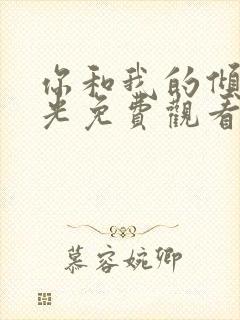 你和我的傾
光免費觀看
慕容婉卿